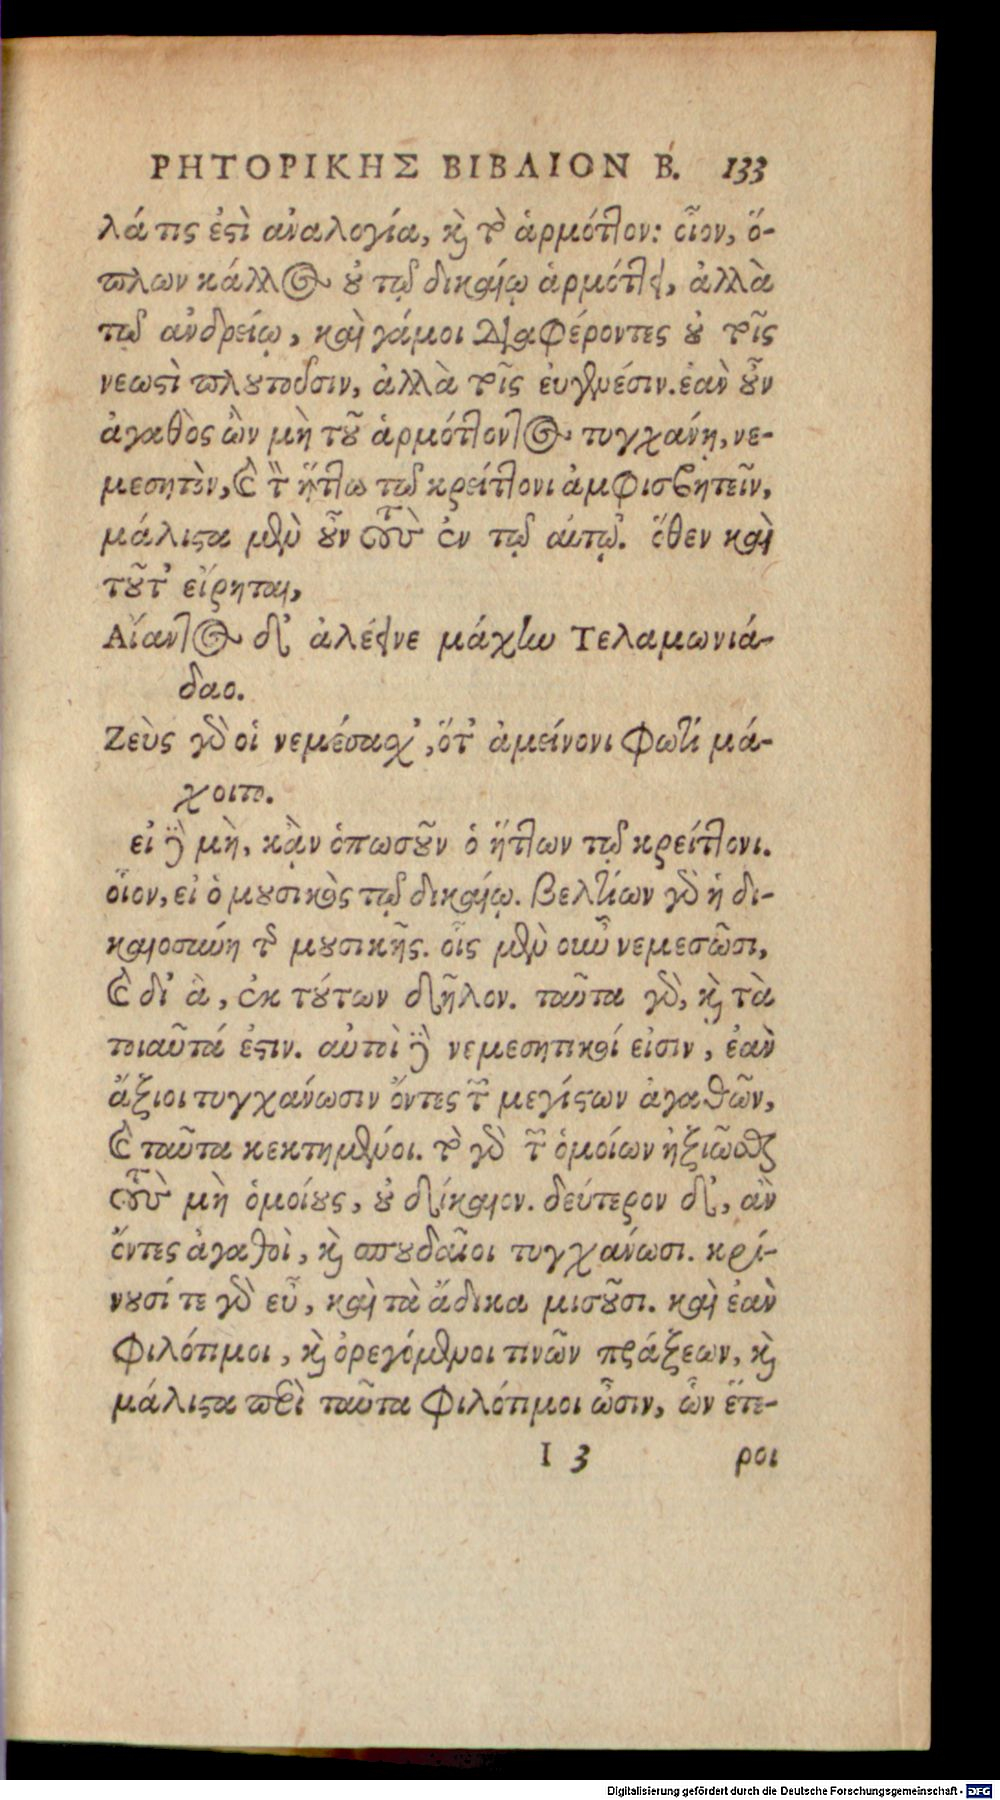 ΡΗΤΟΡΙΚΗΣ ΒΙΒΛΙΟΝ Β. 133
λά τις ἐστὶ ἀναλογία, καὶ τὸ ἁρμότῖον: οἷον, ὅ-
πλων κάλλος οὐ τῷ δικαίῳ ἁρμότῖει, ἀλλὰ
τῷ ἀνδρείῳ, καὶ γάμοι διαφέροντες οὐ τοῖς
νεωστὶ πλουτοῦσιν, ἀλλὰ τοῖς εὐγενέσιν. ἐὰν οὖν
ἀγαθὸς ὢν μὴ τοῦ ἁρμότῖοντος τυγχάνῃ, νε-
μεσητὸν, καὶ τὸν ἥτῖω τῷ κρείτῖονι ἀμφισβητεῖν,
μάλιστα μὲν οὖν τοὺς ἐν τῷ αὐτῷ. ὅθεν καὶ
τοῦτ' εἴρηται,
Αἴαντος δ' ἀλέεινε μάχην Τελαμωνιά-
δαο.
Ζεὺς γὰρ οἱ νεμέσαχ', ὅτ' ἀμείνονι φωτὶ μά-
χοιτο.
εἰ δὲ μὴ, κᾂν ὁπωσοῦν ὁ ἥτῖων τῷ κρείτῖονι.
οἷον, εἰ ὁ μουσικὸς τῷ δικαίῳ. βελτίων γὰρ ἡ δι-
καιοσύνη τῆς μουσικῆς. οἷς μὲν οὖν νεμεσῶσι,
καὶ δι' ἃ, ἐκ τούτων δῆλον. ταῦτα γὰρ, καὶ τὰ
τοιαῦτά ἐστιν. αὐτοὶ δὲ νεμεσητικοί εἰσιν, ἐὰν
ἄξιοι τυγχάνωσιν ὄντες τῶν μεγίστων ἀγαθῶν,
καὶ ταῦτα κεκτημένοι. τὸ γὰρ τῶν ὁμοίων ἠξιῶσθαι
τοὺς μὴ ὁμοίους, οὐ δίκαιον. δεύτερον δ', ἂν
ὄντες ἀγαθοὶ, καὶ σπουδαῖοι τυγχάνωσι. κρί-
νουσί τε γὰρ εὖ, καὶ τὰ ἄδικα μισοῦσι. καὶ ἐὰν
φιλότιμοι, καὶ ὀρεγόμενοι τινῶν πράξεων, καὶ
μάλιστα περὶ ταῦτα φιλότιμοι ὦσιν, ὧν ἕτε-
I 3 ροι
Digitalisierung gefördert durch die Deutsche Forschungsgemeinschaft - DFG